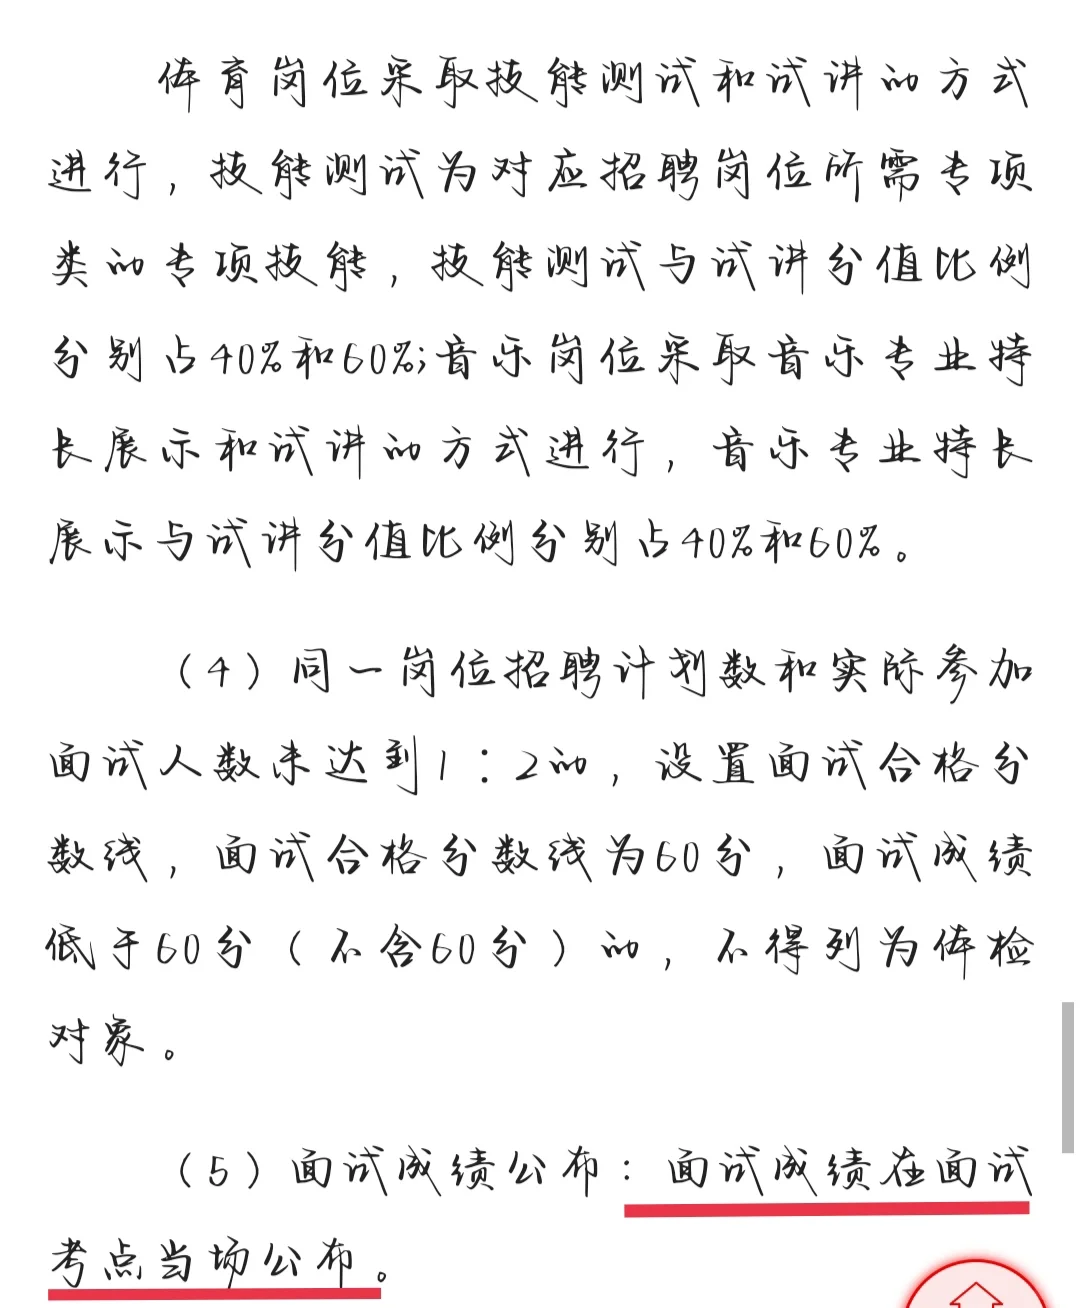 体育岗位采取技能测试和试讲的方式
进行，技能测试为对应招聘岗位所需专项
类的专项技能，技能测试与试讲分值比例
分别占40%和60%;音乐岗位采取音乐专业特
长展示和试讲的方式进行，音乐专业特长
展示与试讲分值比例分别占40%和60%。
（4）同一岗位招聘计划数和实际参加
面试人数未达到1：2的，设置面试合格分
数线，面试合格分数线为60分，面试成绩
低于60分（不含60分）的，不得列为体检
对象。
（5）面试成绩公布：面试成绩在面试
考点当场公布。